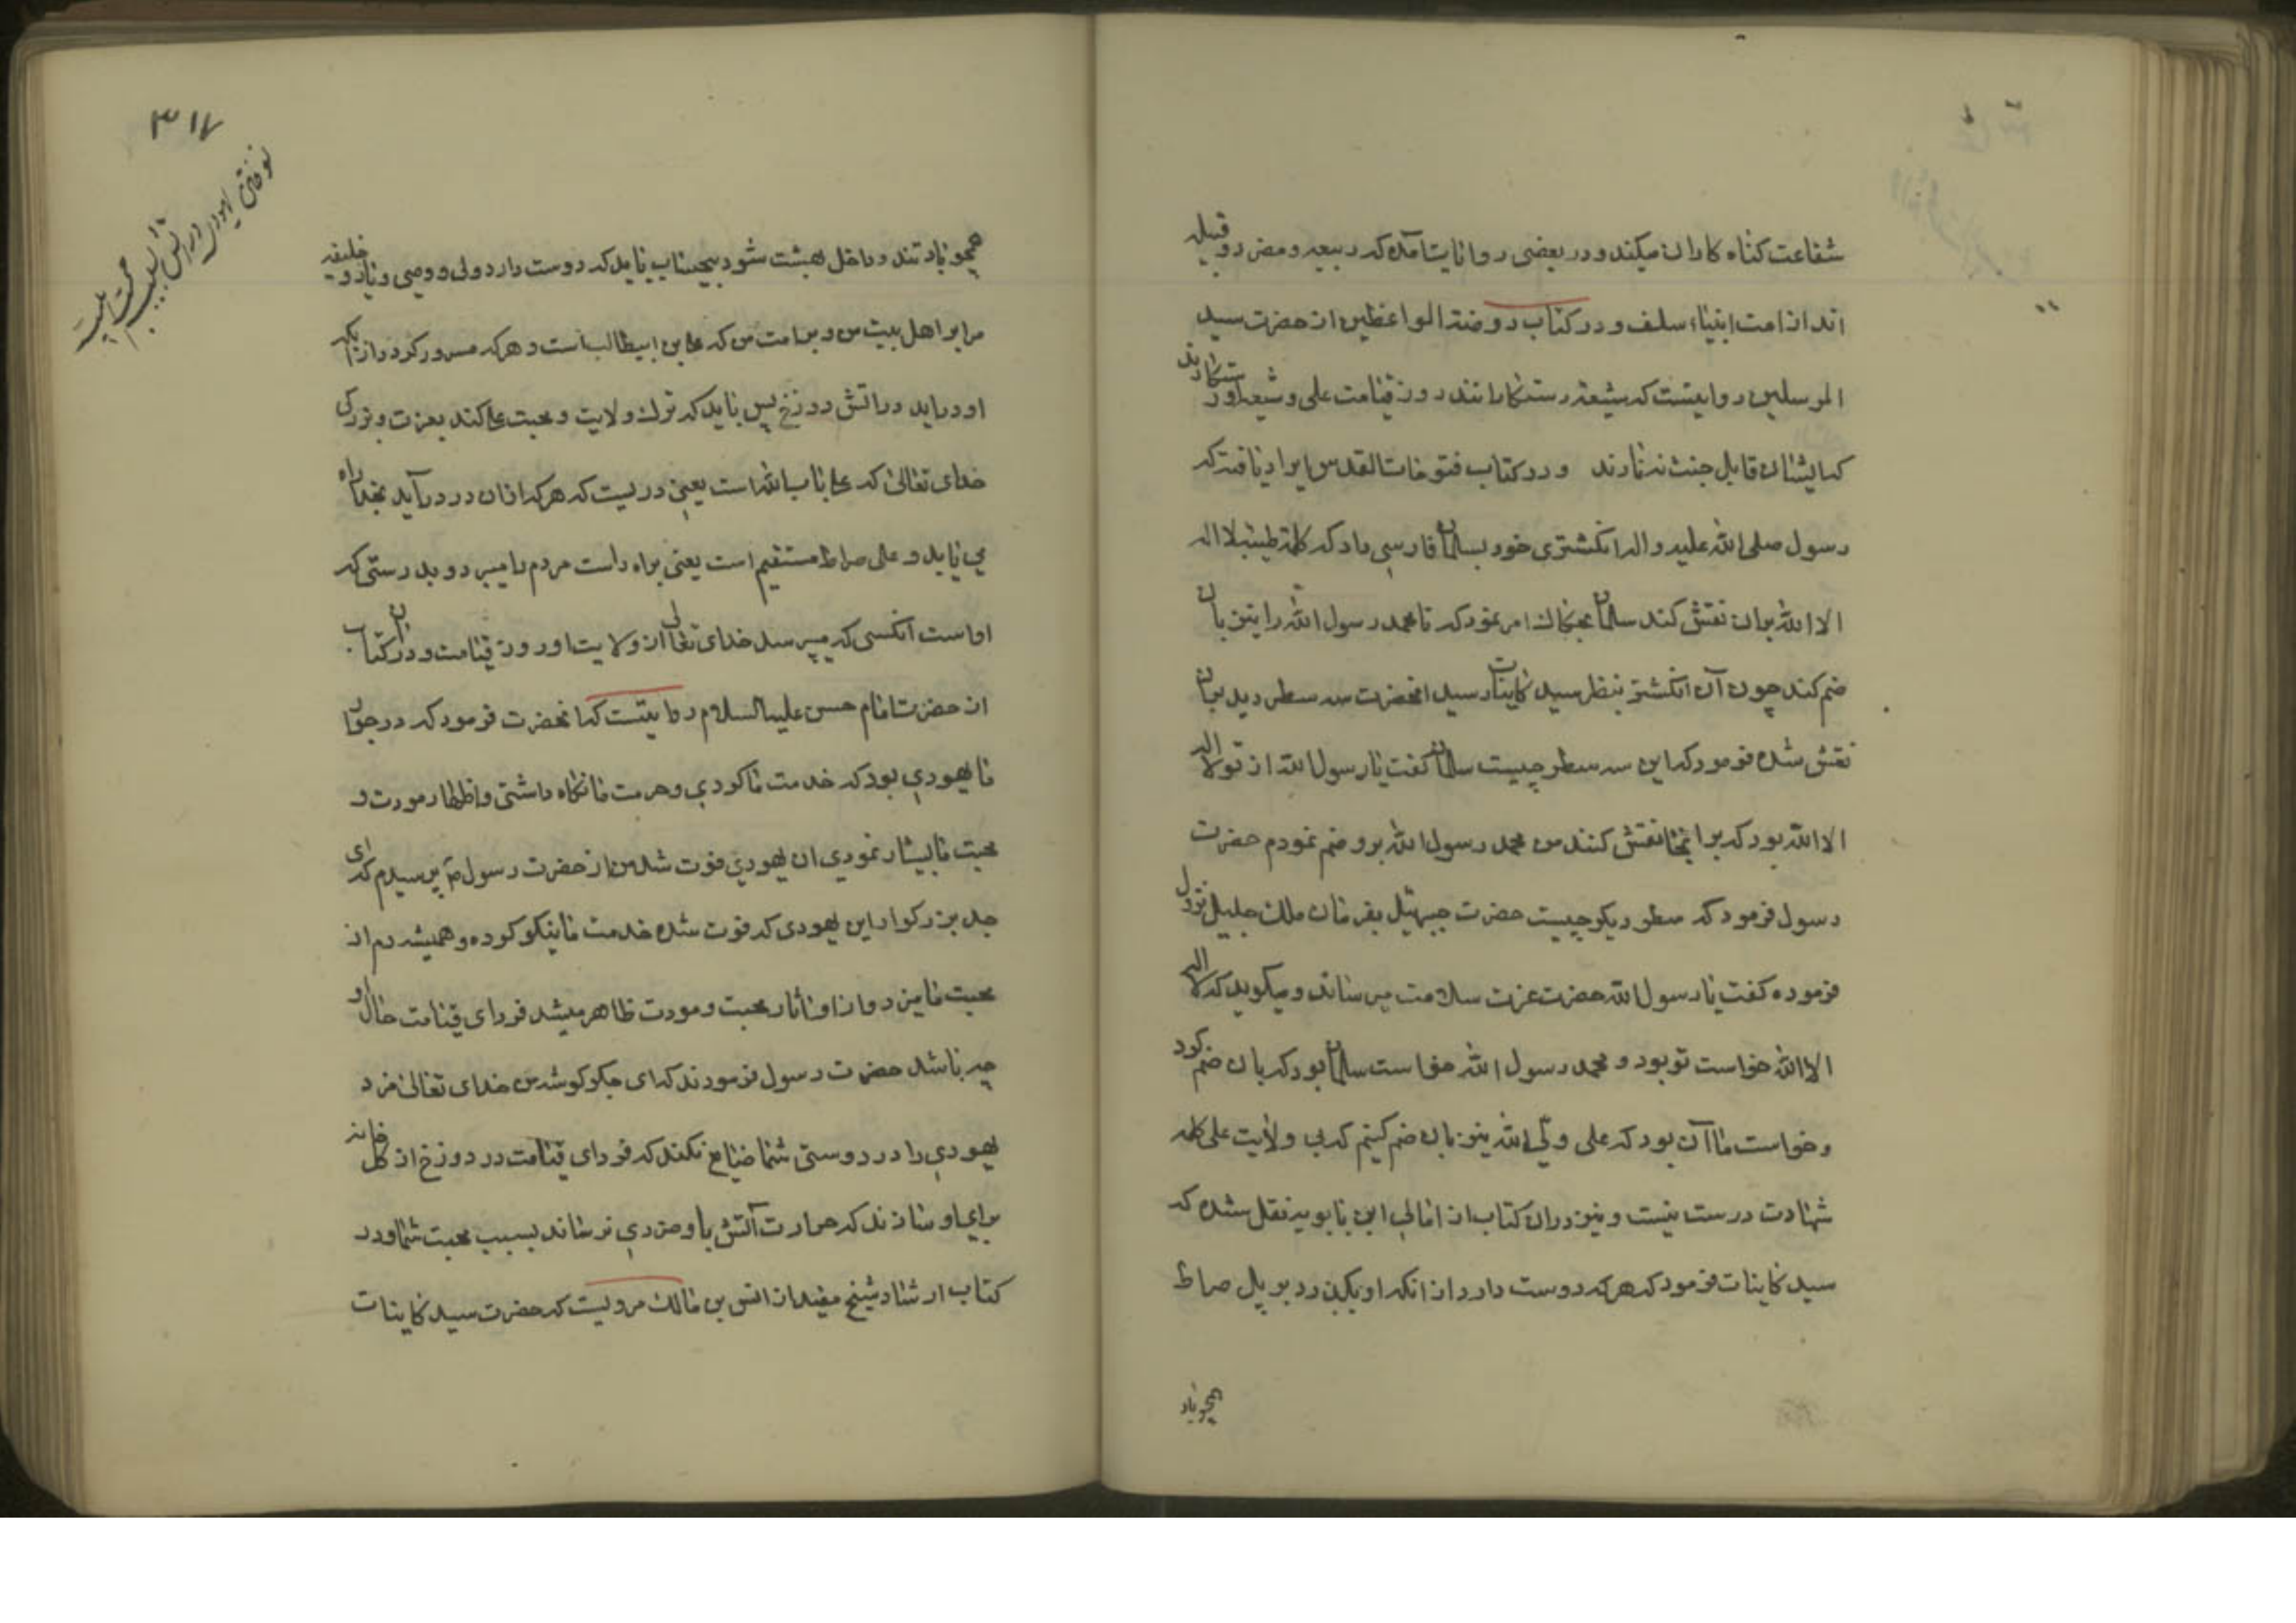 شفاعت كناه كاران ميكند و در بعضى روايات آمده كه ربيعه و مضر دو قبيله
اند از امت انبياء سلف و در كتاب روضة الواعظين از حضرت سيد
المرسلين روايتست كه شيعه رستكارانند روز قيامت على و شيعه او رستكارند
كه ايشان قابل جنت نه نارند و در كتاب فتوحات القدس ايراد يافته كه
رسول صلى الله عليه و اله انكشترى خود بسلمان فارسى داد كه كلمه طيبه لا اله
الا الله بران نقش كند سلمان بحكاك امر نمود كه تا محمد رسول الله را نيز بان
ضم كند چون آن انكشتر بنظر سيد كاينات رسيد انحضرت سه سطر ديد بران
نقش شده فرمود كه اين سه سطر چيست سلمان كفت يا رسول الله از تو لا اله
الا الله بود كه بر انجا نقش كنند من محمد رسول الله برو ضم نمودم حضرت
رسول فرمود كه سطر ديكر چيست حضرت جبرئيل بفرمان ملك جليل نزول
فرموده كفت يا رسول الله حضرت عزت سلامت ميرساند و ميكويد كه لا اله
الا الله خواست تو بود و محمد رسول الله خواست سلمان بود كه بان ضم كرد
و خواست ما آن بود كه على ولى الله نيز بان ضم كنيم كه بى ولايت على كلمه
شهادت درست نيست و نيز دران كتاب از امالى ابن بابويه نقل شده كه
سيد كاينات فرمود كه هر كه دوست دارد از انكه او بكذرد بر پل صراط
همچو باد
٣١٧
همچو باد تند و داخل بهشت شود بيحساب بايد كه دوست دارد ولى و وصى و يار و خليفه
مرا بر اهل بيت من و بر امت من كه على بن ابيطالب است و هر كه مسرور كردد از انكه
او درايد در اتش دوزخ پس بايد كه ترك ولايت و محبت على كند بعزت و بزركى
خداى تعالى كه على باب الله است يعنى دريست كه هر كه ازان در درآيد بخدا راه
مى يابد و على صراط مستقيم است يعنى براه راست مردم را ميبرد و بدرستى كه
او است آنكسى كه ميپرسد خداى تعالى از ولايت او روز قيامت و در ان كتاب
از حضرت امام حسن عليه السلام روايتست كه انحضرت فرمود كه در جوار
ما يهودى بود كه خدمت ما كردى و حرمت ما نكاه داشتى و اظهار مودت و
محبت ما بيشار نمودى ان يهودى فوت شد من از حضرت رسول پرسيدم كه اى
جد بزركوار اين يهودى كه فوت شده خدمت ما نيكو كرده و هميشه دم از
محبت ما ميزد و از او اثار محبت و مودت ظاهر ميشد فرداى قيامت حال او
چه باشد حضرت رسول فرمودند كه اى جكر كوشه من خداى تعالى مزد
يهودى را در دوستى شما ضايع نكند كه فرداى قيامت در دوزخ از كل خانه
براى او سازند كه حرارت آتش باو ضررى نرساند بسبب محبت شما و در
كتاب ارشاد شيخ مفيد از انس بن مالك مرويست كه حضرت سيد كاينات